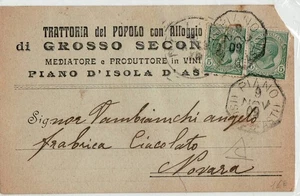 TRATTORIA del POPOLO con Alloggio
di GROSSO SECON
MEDIATORE e PRODUTTORE in VINI
PIANO D'ISOLA D'AS
PIANO
9
NOV
09
Signor Tambianchi angelo
frabrica Ciacolato
Novara